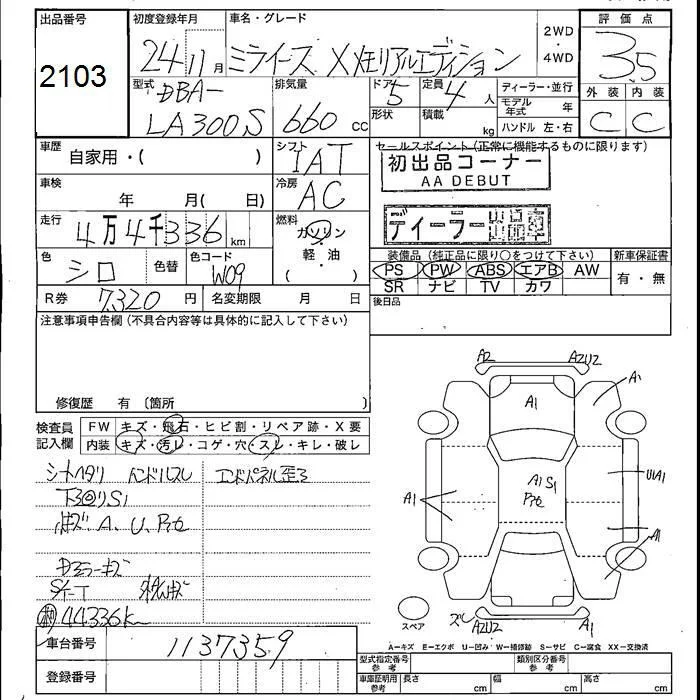 出品番号
2103
初度登録年月
24 11 月
車名・グレード
ミライース X メモリアルエディション
2WD
・
4WD
評価点
3.5
外装 内装
C C
型式
DBA-
LA300S
排気量
660 cc
ドア
5
形状
定員
4 人
積載
kg
ディーラー・並行
モデル年式 年
ハンドル 左・右
車歴
自家用・( )
シフト
IAT
セールスポイント(正常に機能するものに限ります)
初出品コーナー
AA DEBUT
車検
年 月( 日)
冷房
AC
ディーラー
走行
4万4千336 km
燃料
ガソリン
・
軽・油
( )
色
シロ
色替
色コード
W09
装備品(純正品に限り○をつけて下さい)
PS PW ABS エアB AW
SR ナビ TV カワ
新車保証書
有・無
R券 7,320 円
名変期限 月 日
後日品
注意事項申告欄(不具合内容等は具体的に記入して下さい)
修復歴 有 〔箇所 〕
検査員
記入欄
FW キズ・飛石・ヒビ割・リペア跡・X要
内装 キズ・汚レ・コゲ・穴・スレ・キレ・破レ
シートヘタリ ハンドルスレ エンドパネル歪ミ
下廻りS1
A、U、
ドアミラーキズ
44336k
A2 AZU2
A1 A1
A1 S1
A1 U1A1
A1
スペア
ズレ AZU2 A1
A=キズ E=エクボ U=凹み W=補修跡 S=サビ C=腐食 XX=交換済
車台番号 1137359
登録番号
型式指定番号 参考
類別区分番号 参考
車庫証明用 参考
長さ cm 幅 cm 高さ cm